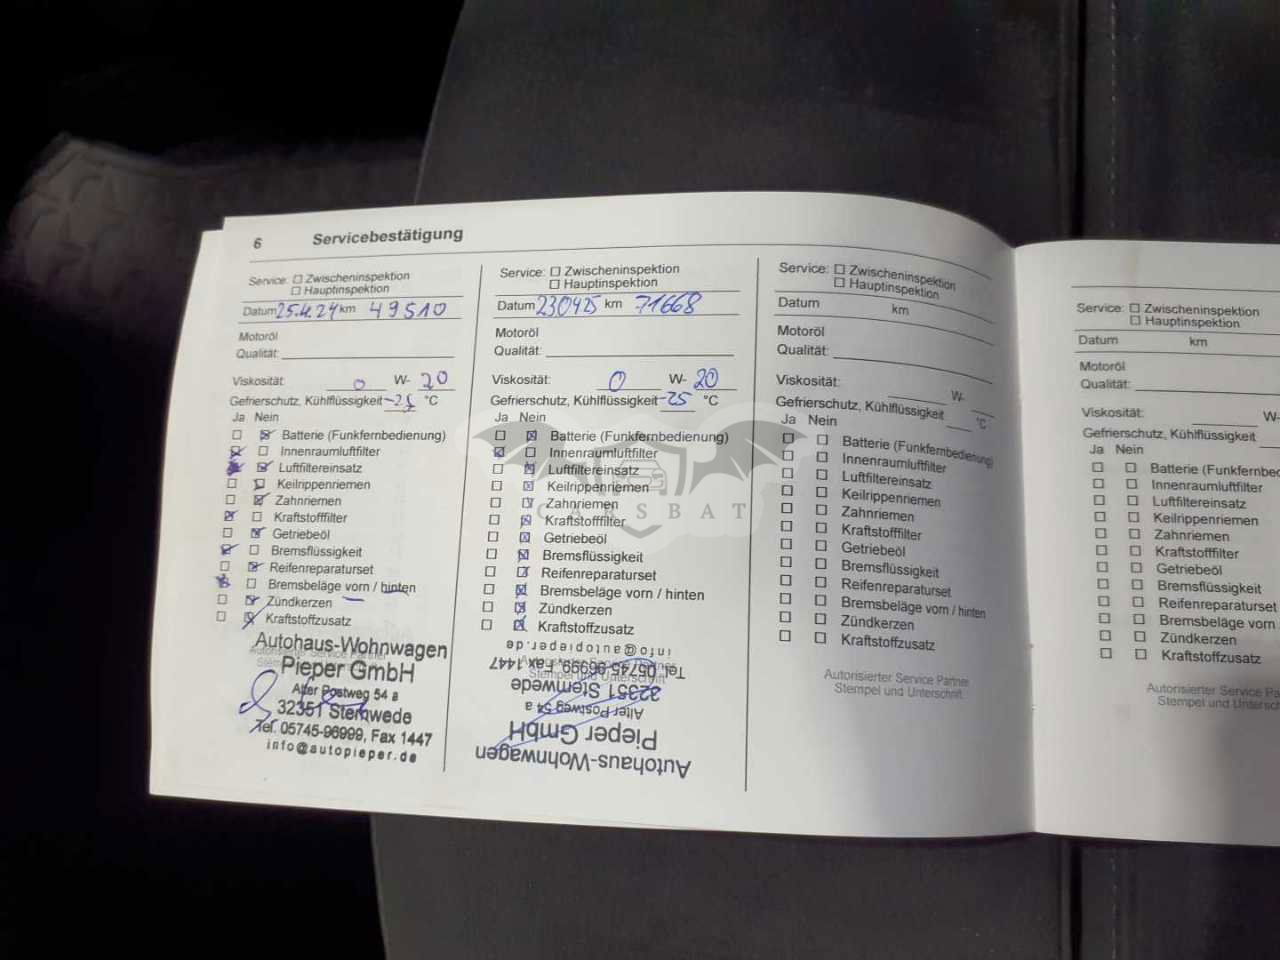 6 Servicebestätigung
Service: ☐ Zwischeninspektion
☐ Hauptinspektion
Datum 25.4.24 km 49510
Motoröl
Qualität:
Viskosität: 0 W- 20
Gefrierschutz, Kühlflüssigkeit -25 °C
Ja Nein
Batterie (Funkfernbedienung)
Innenraumluftfilter
Luftfiltereinsatz
Keilrippenriemen
Zahnriemen
Kraftstofffilter
Getriebeöl
Bremsflüssigkeit
Reifenreparaturset
Bremsbeläge vorn / hinten
Zündkerzen
Kraftstoffzusatz
Autorisierter Service Partner
Autohaus-Wohnwagen
Pieper GmbH
Alter Postweg 54 a
32351 Stemwede
Tel. 05745-96999, Fax 1447
info@autopieper.de
Service: ☐ Zwischeninspektion
☐ Hauptinspektion
Datum 230425 km 71668
Motoröl
Qualität:
Viskosität: 0 W- 20
Gefrierschutz, Kühlflüssigkeit -25 °C
Ja Nein
Batterie (Funkfernbedienung)
Innenraumluftfilter
Luftfiltereinsatz
Keilrippenriemen
Zahnriemen
Kraftstofffilter
Getriebeöl
Bremsflüssigkeit
Reifenreparaturset
Bremsbeläge vorn / hinten
Zündkerzen
Kraftstoffzusatz
Autorisierter Service Partner
Stempel und Unterschrift
Autohaus-Wohnwagen
Pieper GmbH
Alter Postweg 54 a
32351 Stemwede
Tel. 05745-96999, Fax 1447
info@autopieper.de
CARSBAT
Service: ☐ Zwischeninspektion
☐ Hauptinspektion
Datum km
Motoröl
Qualität:
Viskosität: W-
Gefrierschutz, Kühlflüssigkeit °C
Ja Nein
Batterie (Funkfernbedienung)
Innenraumluftfilter
Luftfiltereinsatz
Keilrippenriemen
Zahnriemen
Kraftstofffilter
Getriebeöl
Bremsflüssigkeit
Reifenreparaturset
Bremsbeläge vorn / hinten
Zündkerzen
Kraftstoffzusatz
Autorisierter Service Partner
Stempel und Unterschrift
Service: ☐ Zwischeninspektion
☐ Hauptinspektion
Datum km
Motoröl
Qualität:
Viskosität: W-
Gefrierschutz, Kühlflüssigkeit
Ja Nein
Batterie (Funkfernbe
Innenraumluftfilter
Luftfiltereinsatz
Keilrippenriemen
Zahnriemen
Kraftstofffilter
Getriebeöl
Bremsflüssigkeit
Reifenreparaturset
Bremsbeläge vorn
Zündkerzen
Kraftstoffzusatz
Autorisierter Service Pa
Stempel und Unterschrift